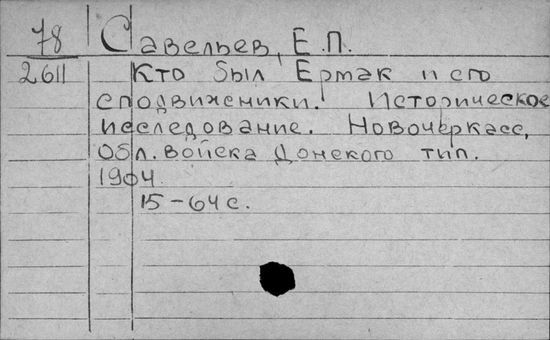 78 Савельев, Е.П.
2611 Кто был Ермак и его
сподвижники. Историческое
исследование. Новочеркасс,
Обл. войска Донского тип.
1904
15-64 с.